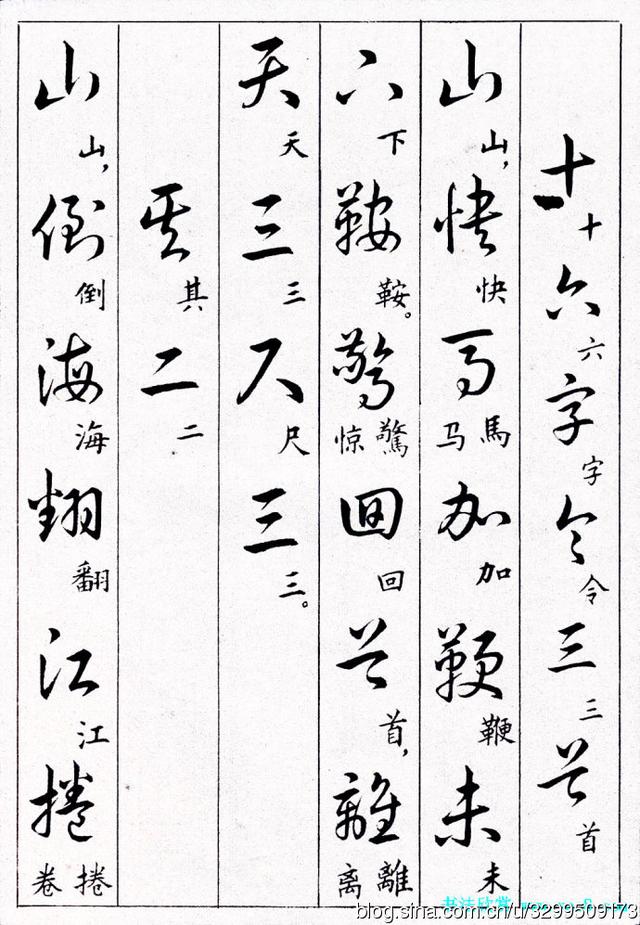 十六字令三首
十六字令三首
山快馬加鞭未
山，快馬马加鞭未
下鞍驚回首離
下鞍。驚惊回首，離离
天三尺三
天三尺三。
其二
其二
山倒海翻江捲
山，倒海翻江捲卷
blog.sina.com.cn/u/3299509173